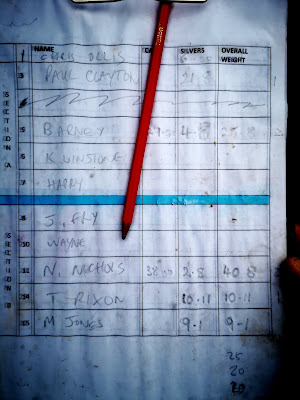 NAME SILVERS OVERALL WEIGHT
1 CHRIS OLLIS
3 PAUL CLAYTON 21-8
5 BARNEY 4-8 28-8
6 K WINSTONE
7 HARRY
8 J. FRY
10 WAYNE
N. NICHOLS 38-00 2-8 40-8
14 T RIXON 10-11 10-11
M JONES 9-1 9-1
25
20
SECTION A
SECTION B